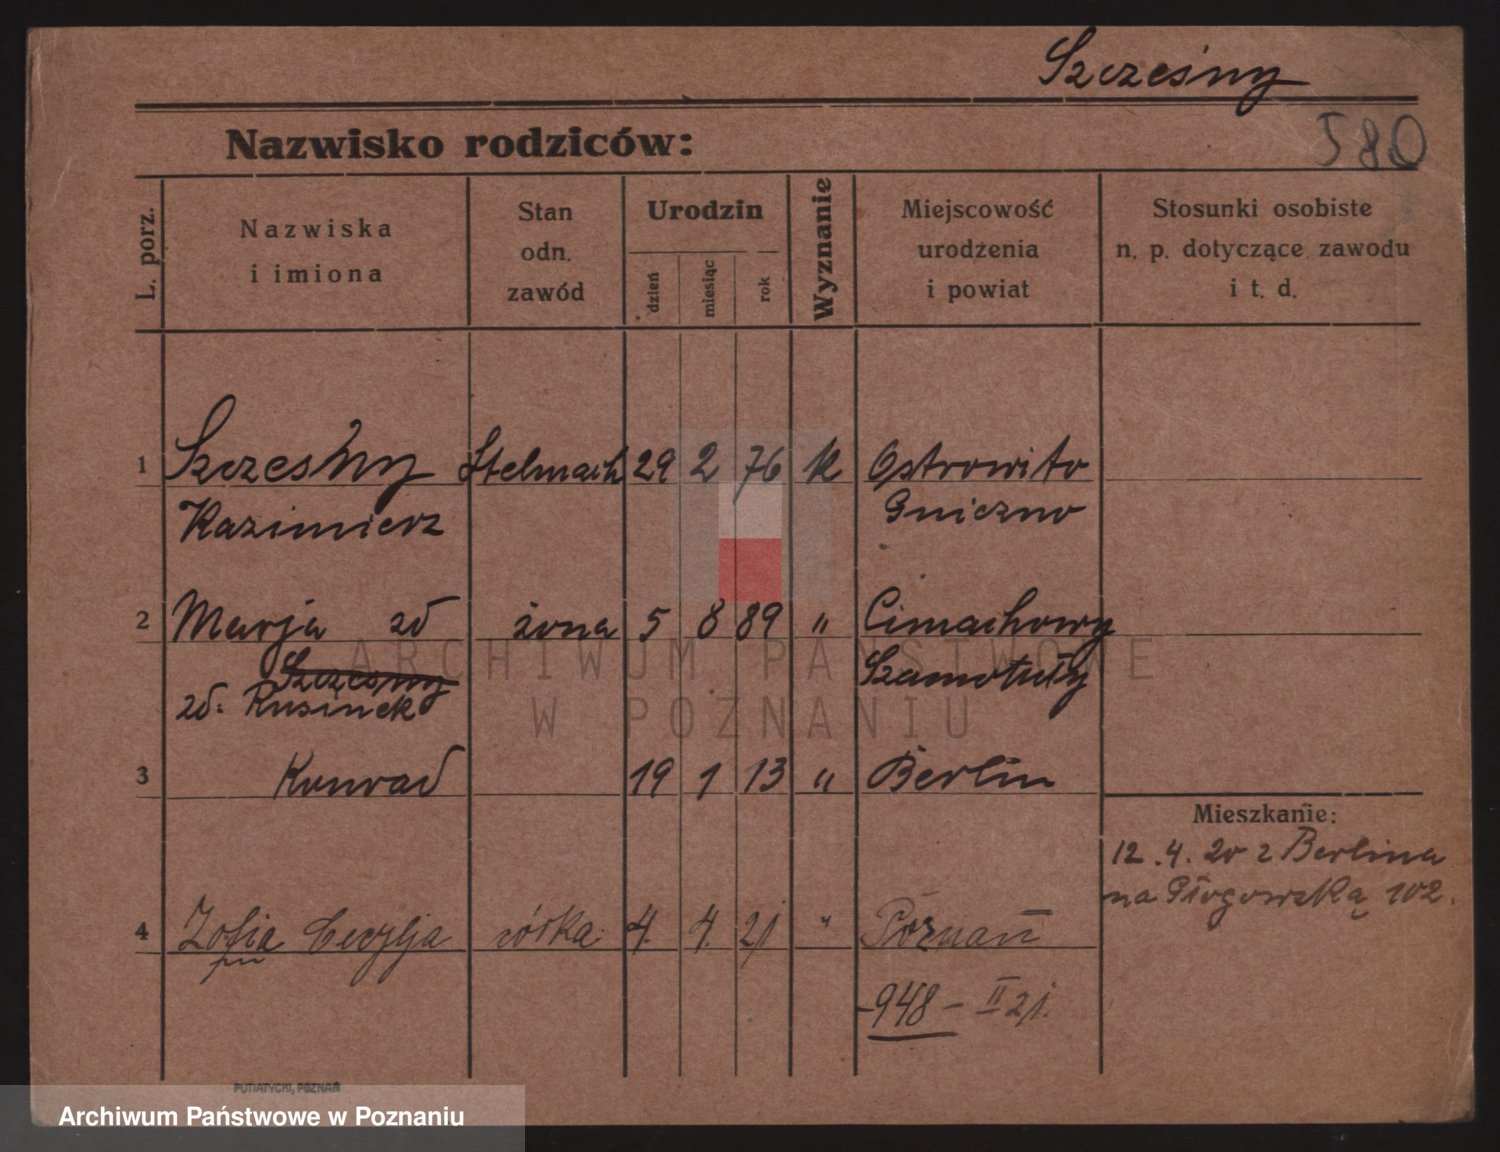 Szcześny
580
Nazwisko rodziców:
L. porz.
Nazwiska
i imiona
Stan
odn.
zawód
Urodzin
dzień
miesiąc
rok
Wyznanie
Miejscowość
urodzenia
i powiat
Stosunki osobiste
n. p. dotyczące zawodu
i t. d.
1 Szczesny Stelmach 29 2 76 k Ostrowito
Kazimierz Gniezno
2 Marja zd żona 5 8 89 " Cimachowy
Szczesny Szamotuły
zd. Rusinek
3 Konrad 19 1 13 " Berlin
Mieszkanie:
12.4.20 z Berlina
na Głogowską 102.
4 Zofja Cecylja córka 4. 4. 21 " Poznań
-948- II 21.
PUTIATYCKI, POZNAŃ
ARCHIWUM PAŃSTWOWE
W POZNANIU
Archiwum Państwowe w Poznaniu